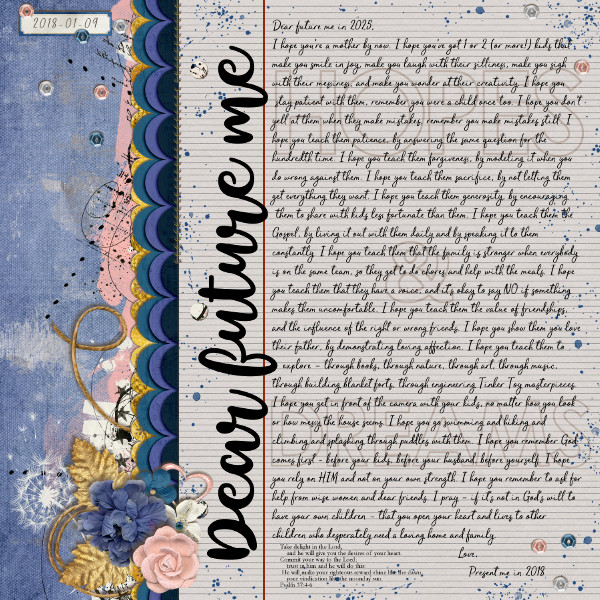 2018-01-09
Dear future me
Dear future me in 2025,
I hope you're a mother by now. I hope you've got 1 or 2 (or more!) kids that
make you smile in joy, make you laugh with their silliness, make you sigh
with their messiness, and make you wonder at their creativity. I hope you
stay patient with them, remember you were a child once too. I hope you don't
yell at them when they make mistakes, remember you make mistakes still. I
hope you teach them patience, by answering the same question for the
hundredth time. I hope you teach them forgiveness, by modeling it when you
do wrong against them. I hope you teach them sacrifice, by not letting them
get everything they want. I hope you teach them generosity, by encouraging
them to share with kids less fortunate than them. I hope you teach them the
Gospel, by living it out with them daily and by speaking it to them
constantly. I hope you teach them that the family is stronger when everybody
is on the same team, so they get to do chores and help with the meals. I hope
you teach them that they have a voice, and it's okay to say NO if something
makes them uncomfortable. I hope you teach them the value of friendships,
and the influence of the right or wrong friends. I hope you show them you love
their father, by demonstrating loving affection. I hope you teach them to
explore - through books, through nature, through art, through music,
through building blanket forts, through engineering Tinker Toy masterpieces.
I hope you get in front of the camera with your kids, no matter how you look
or how messy the house seems. I hope you go swimming and hiking and
climbing and splashing through puddles with them. I hope you remember God
comes first - before your kids, before your husband, before yourself. I hope
you rely on HIM and not on your own strength. I hope you remember to ask for
help from wise women and dear friends. I pray - if it's not in God's will to
have your own children - that you open your heart and lives to other
children who desperately need a loving home and family.
Love,
Present me in 2018
Take delight in the Lord,
and he will give you the desires of your heart.
Commit your way to the Lord;
trust in him and he will do this:
He will make your righteous reward shine like the dawn,
your vindication like the noonday sun.
Psalm 37:4-6
HOPES
&